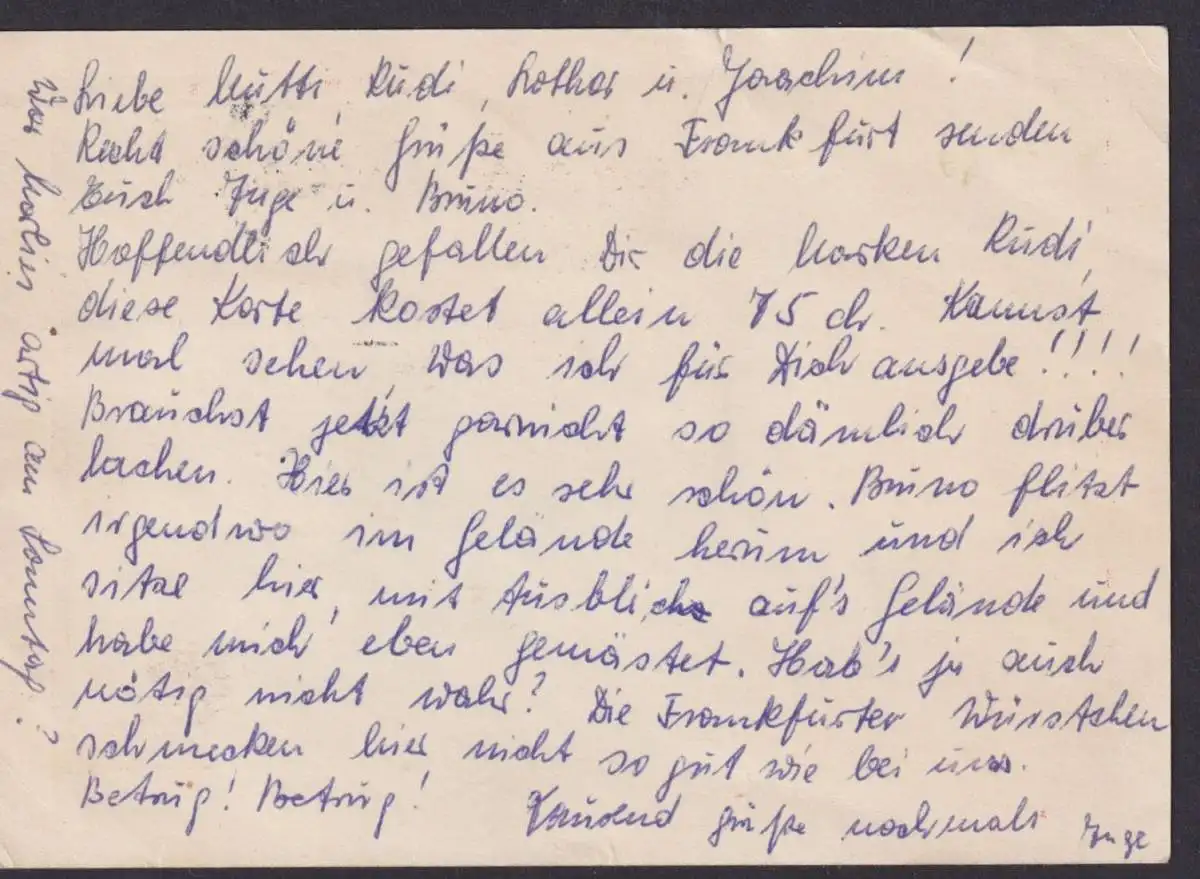 Liebe Mutti, Rudi, Lothar u. Joachim!
Recht schöne Grüße aus Frankfurt senden
Euch Inge u. Bruno.
Hoffendlich gefallen Dir die Marken Rudi,
diese Karte kostet allein 75 ch. Kannst
mal sehen, was ich für Dich ausgebe!!!!
Brauchst jetzt garnicht so dämlich drüber
lachen. Hier ist es sehr schön. Bruno flitzt
irgendwo im Gelände herum und ich
sitze hier, mit Ausblick auf's Gelände und
habe mich eben gemästet. Hab's ja auch
nötig nicht wahr? Die Frankfurter Würstchen
schmecken hier nicht so gut wie bei uns.
Betrug! Betrug!
Tausend Grüße nochmals Inge
War Marlies artig am Sonntag?